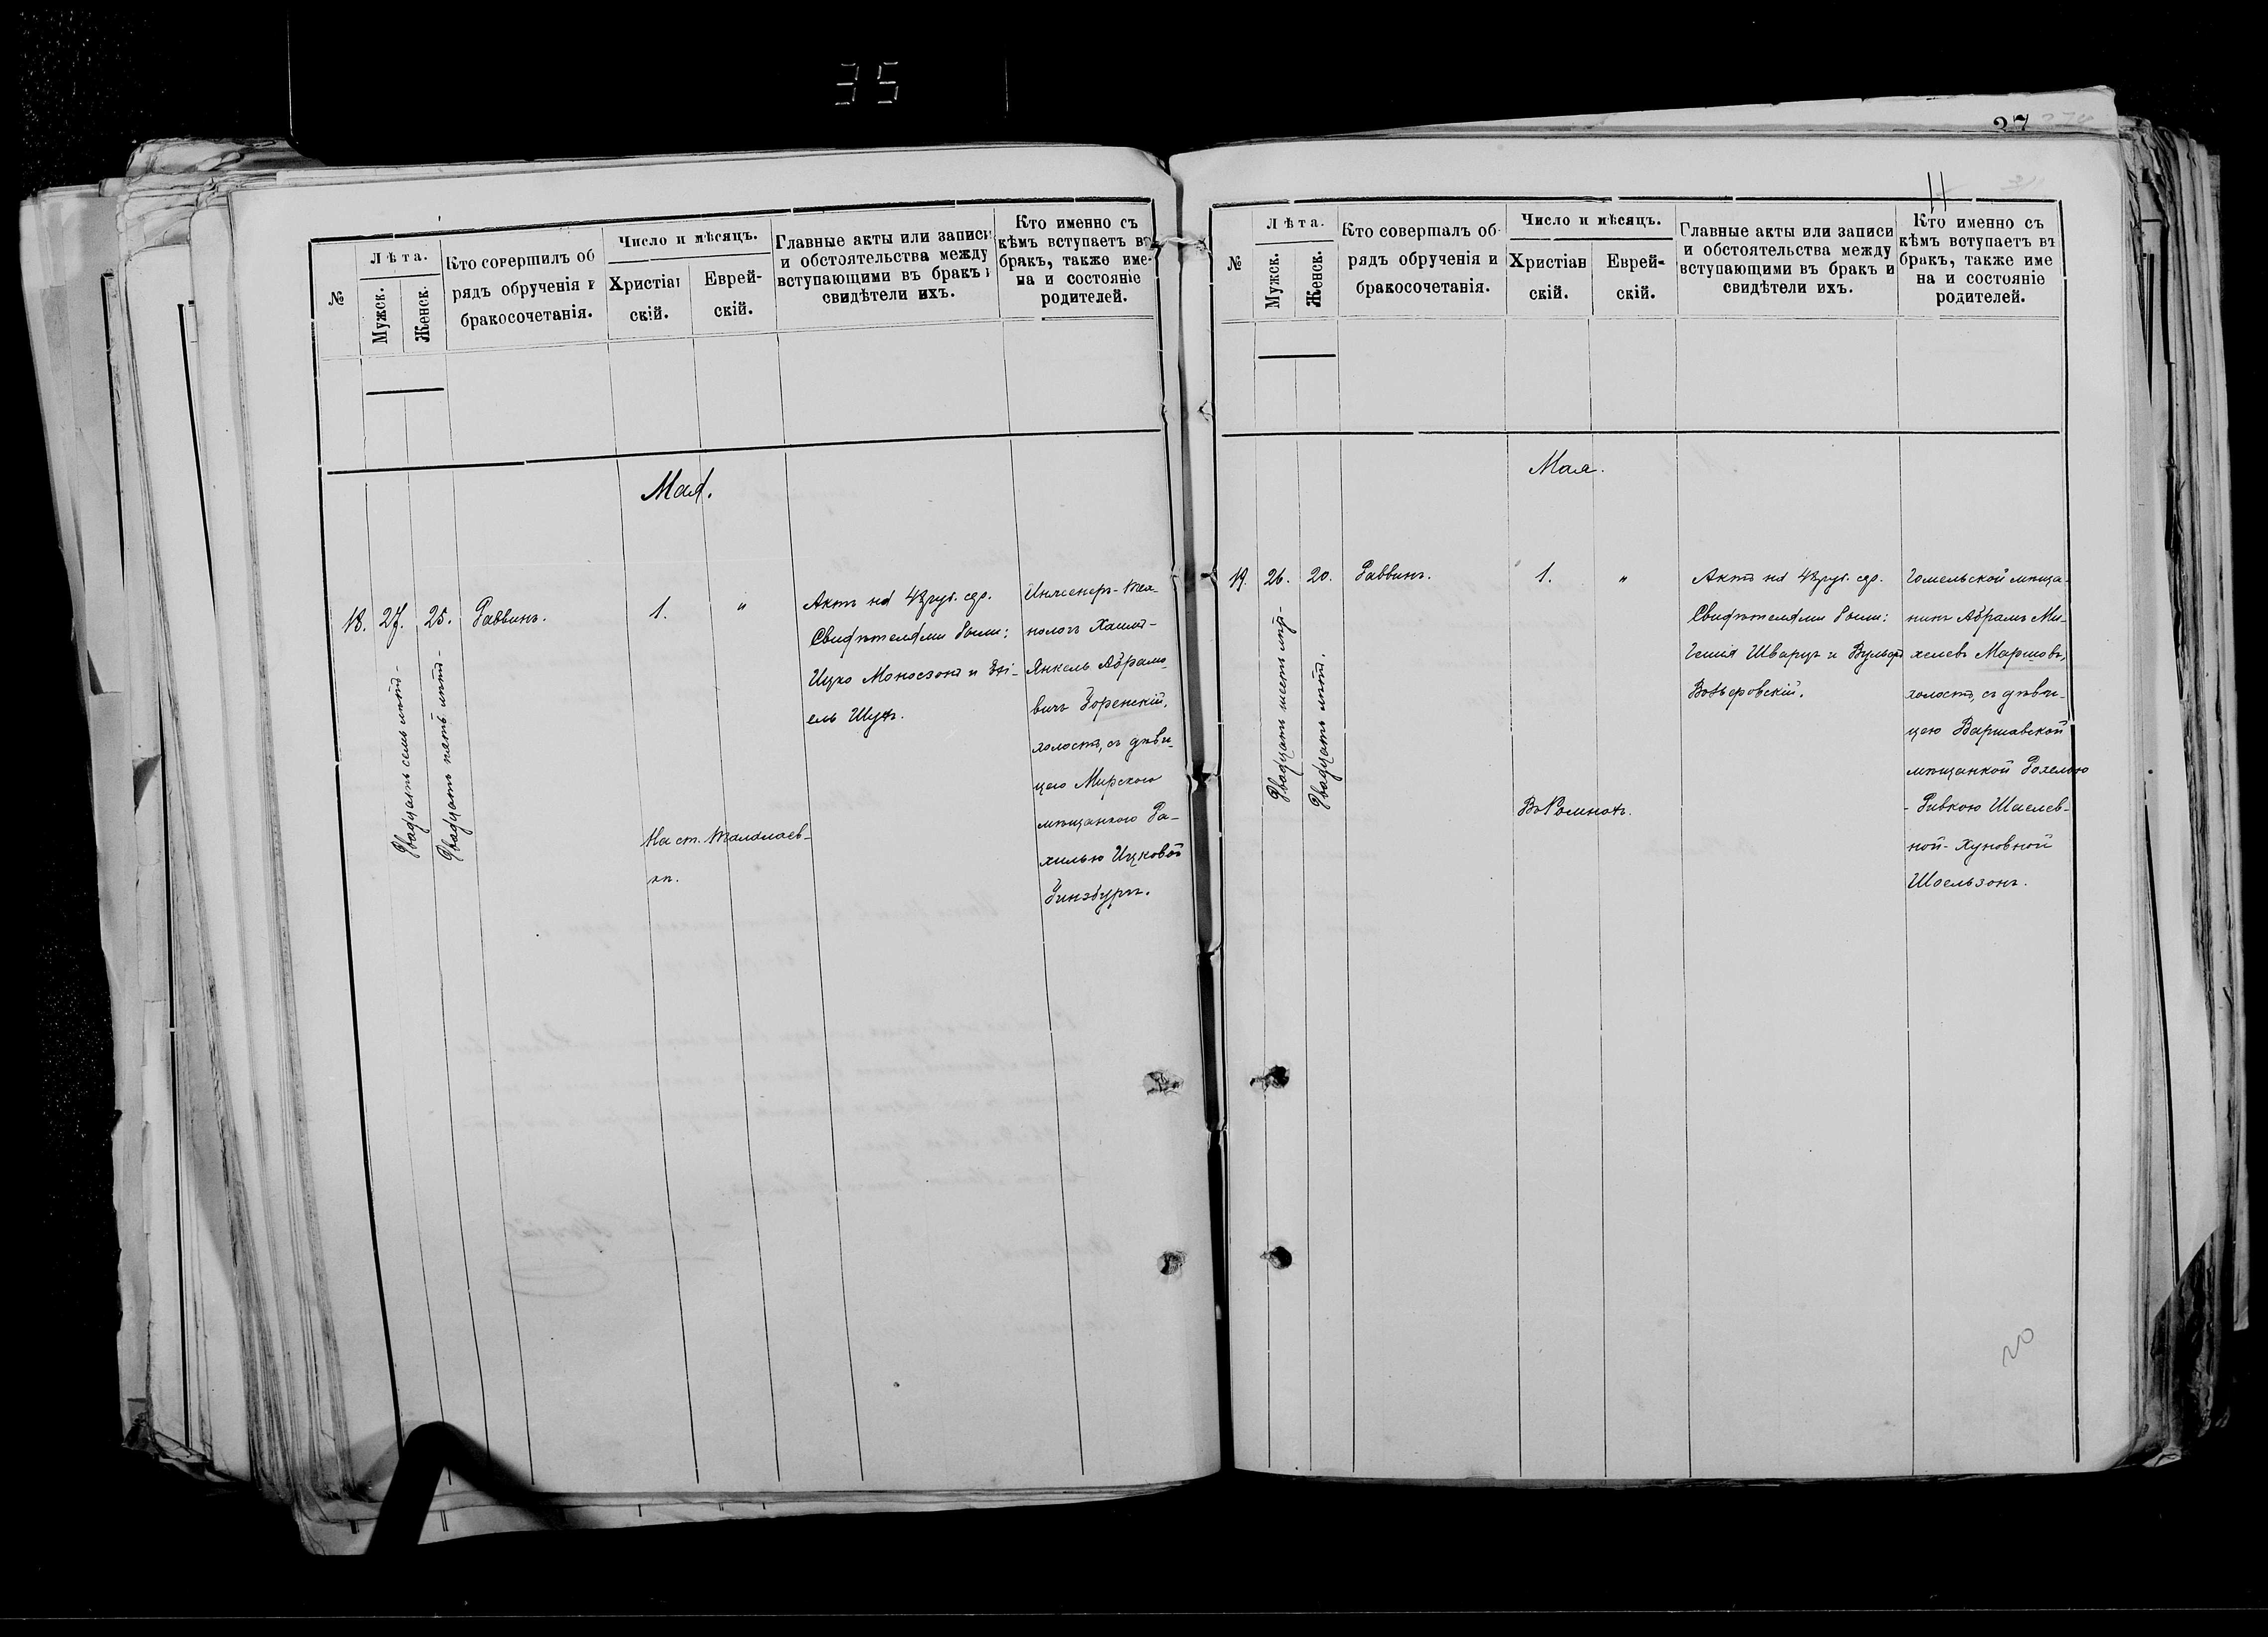 35
37
№
Лѣта.
Мужск.
Женск.
Кто совершилъ об
рядъ обрученія и
бракосочетанія.
Число и мѣсяцъ.
Христіан
скій.
Еврей-
скій.
Главные акты или записи
и обстоятельства между
вступающими въ бракъ и
свидѣтели ихъ.
Кто именно съ
кѣмъ вступаетъ въ
бракъ, также име-
на и состояніе
родителей.
Мая.
18.
27.
Двадцать семь лѣтъ
25.
Двадцать пять лѣтъ
Раввинъ.
1.
"
На ст. Талалаев-
кѣ.
Актъ на 48 руб. сер.
Свидѣтелями были:
Ицко Моносзонъ и
ель Шуфъ.
Инженеръ-тех-
нологъ Хаимъ-
Янкель Абрамо-
вичъ Горенскій,
холостъ, съ дѣви-
цею Мирскою
мѣщанкою Ра-
хилью Ицковой
Гинзбургъ.
11
№
Лѣта.
Мужск.
Женск.
Кто совершалъ об-
рядъ обрученія и
бракосочетанія.
Число и мѣсяцъ.
Христіан
скій.
Еврей-
скій.
Главные акты или записи
и обстоятельства между
вступающими въ бракъ и
свидѣтели ихъ.
Кто именно съ
кѣмъ вотупаетъ въ
бракъ, также име
на и состояніе
родителей.
Мая.
19.
26.
Двадцать шесть лѣтъ
20.
Двадцать лѣтъ.
Раввинъ.
1.
"
Въ Ромнахъ.
Актъ на 48 руб. сер.
Свидѣтелями были:
Шварцъ и Вульфъ
Гомельской мѣща-
нинъ Абрамъ Ми-
хелевъ Маршовъ,
холостъ, съ дѣви-
цею Варшавской
мѣщанкой Рохелью
- Ривкою Шаелев-
ной-Хуновной
Шоельзонъ.
20